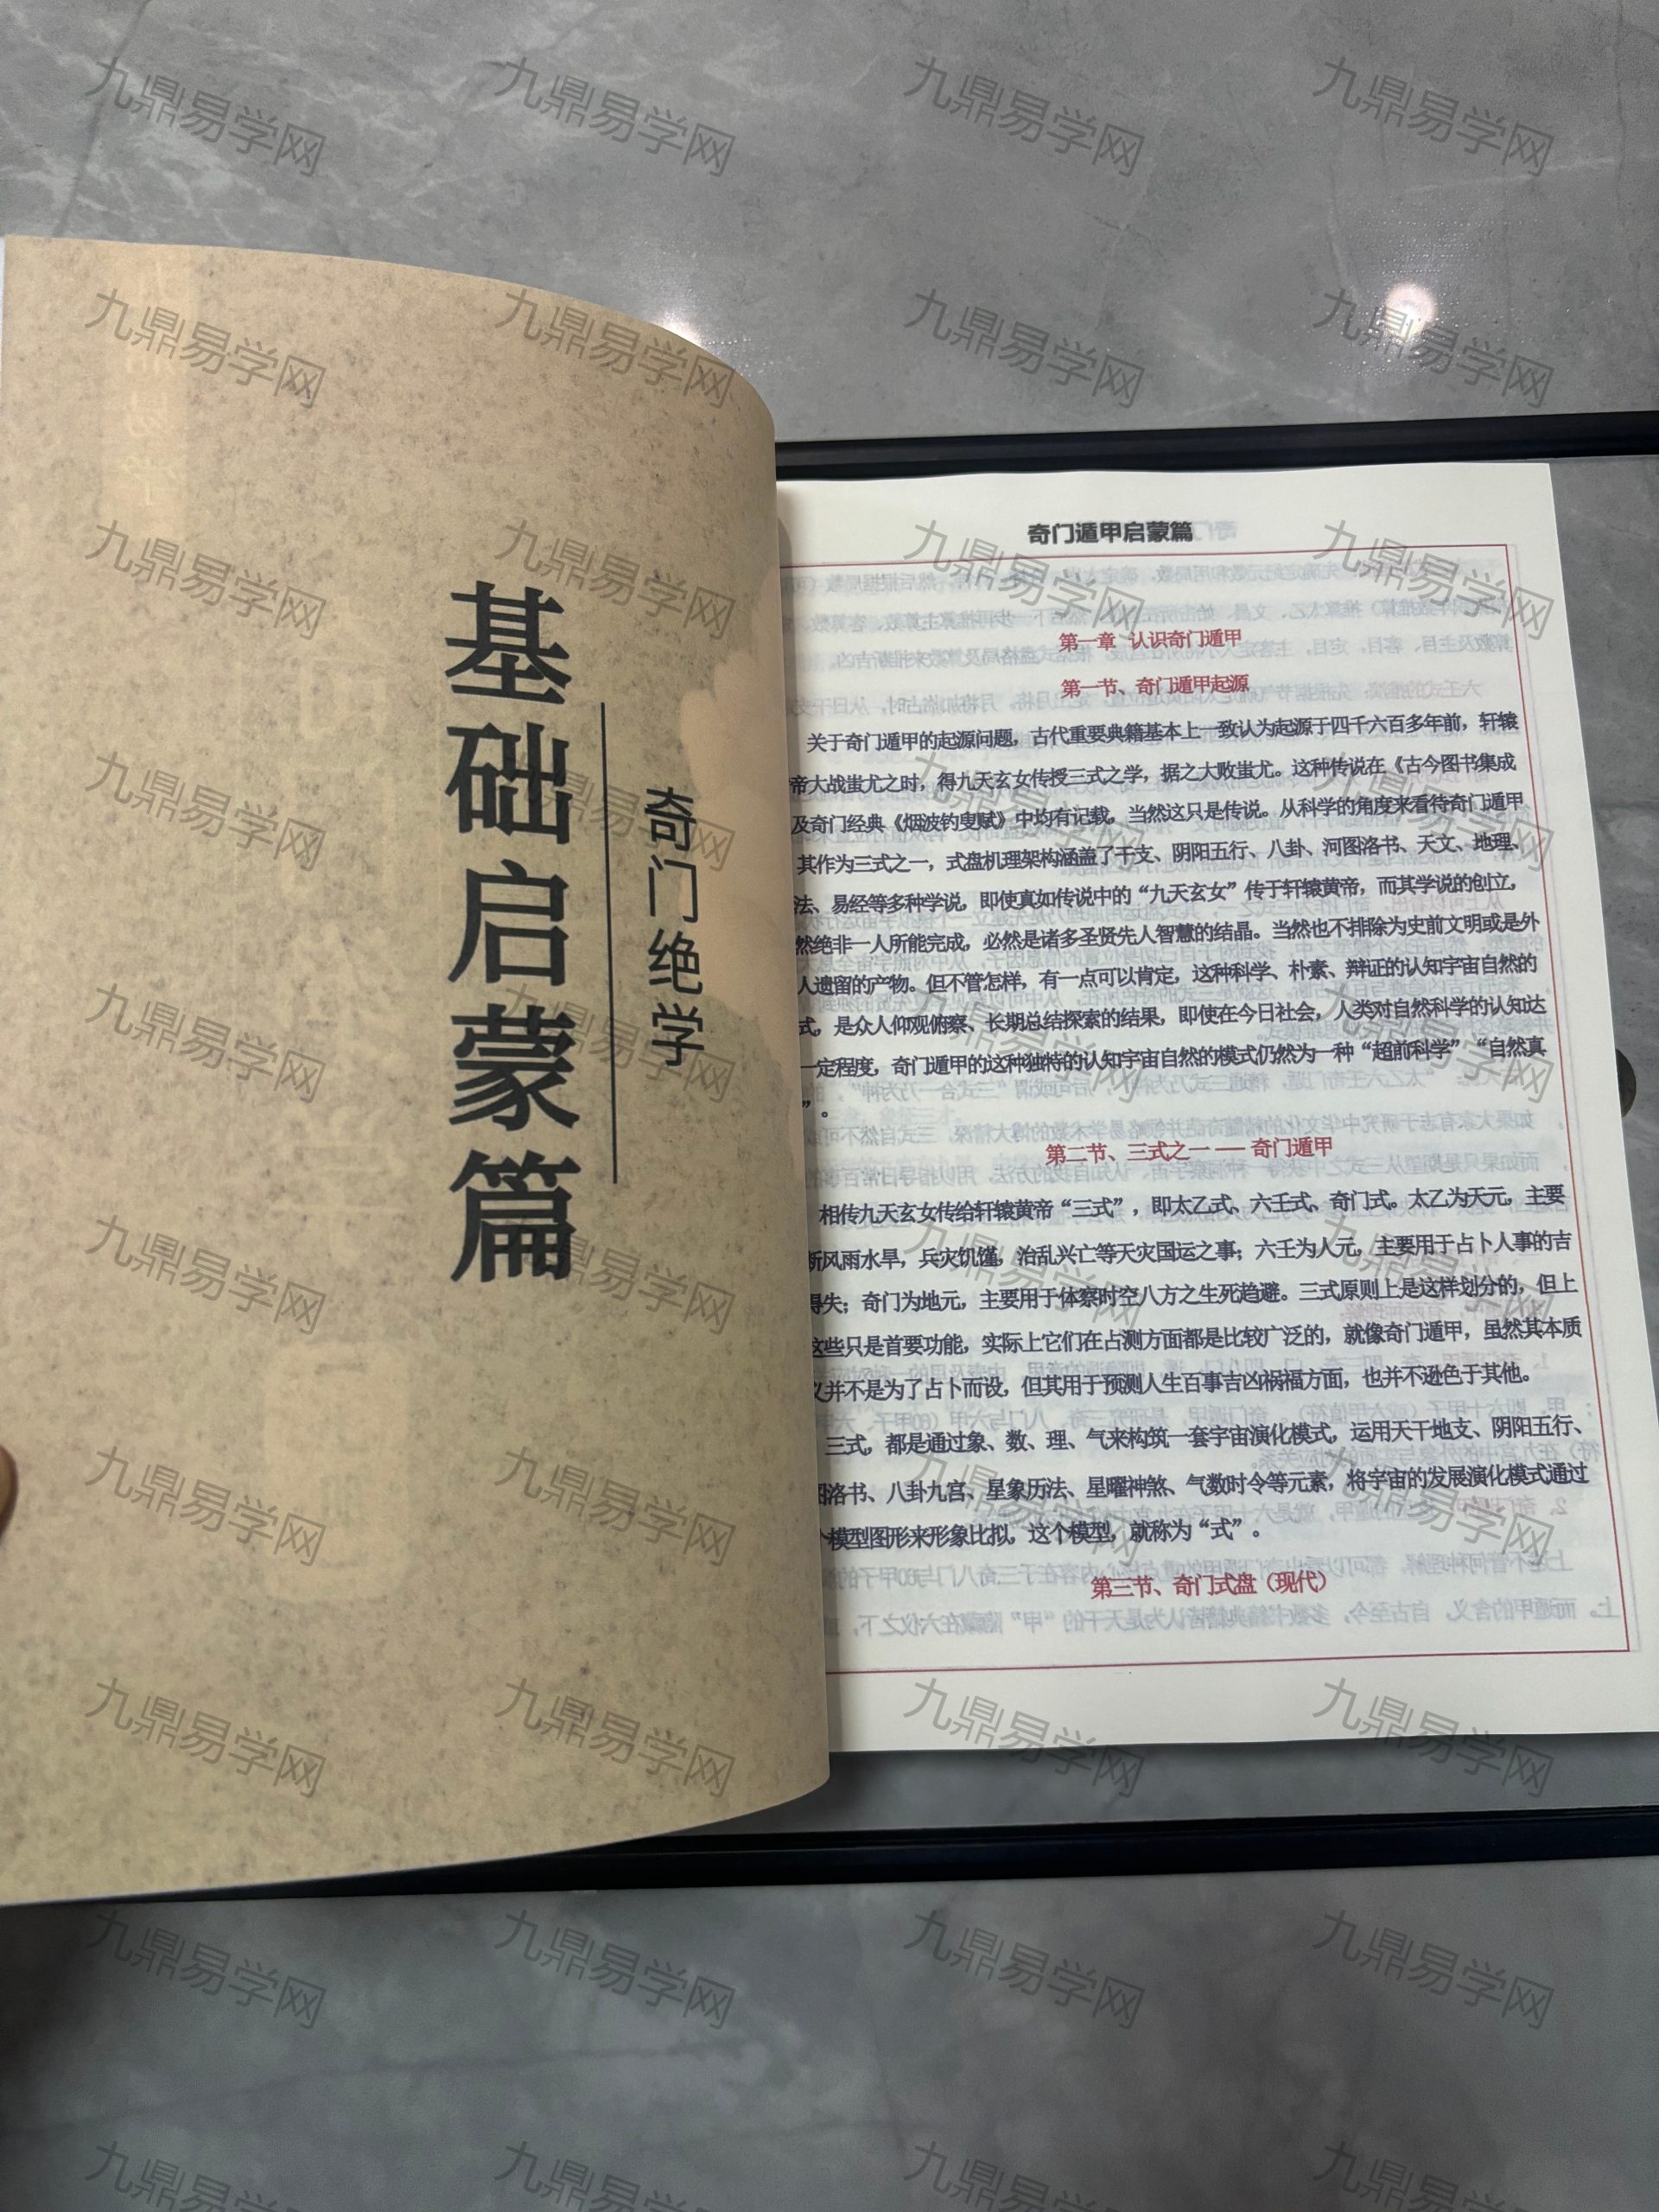 基础启蒙篇
奇门绝学
奇门遁甲启蒙篇
第一章 认识奇门遁甲
第一节、奇门遁甲起源
关于奇门遁甲的起源问题，古代重要典籍基本上一致认为起源于四千六百多年前，轩辕
帝大战蚩尤之时，得九天玄女传授三式之学，据之大败蚩尤。这种传说在《古今图书集成
及奇门经典《烟波钓叟赋》中均有记载，当然这只是传说。从科学的角度来看待奇门遁甲
其作为三式之一，式盘机理架构涵盖了干支、阴阳五行、八卦、河图洛书、天文、地理、
法、易经等多种学说，即使真如传说中的“九天玄女”传于轩辕黄帝，而其学说的创立，
然绝非一人所能完成，必然是诸多圣贤先人智慧的结晶。当然也不排除为史前文明或是外
人遗留的产物。但不管怎样，有一点可以肯定，这种科学、朴素、辩证的认知宇宙自然的
式，是众人仰观俯察、长期总结探索的结果，即使在今日社会，人类对自然科学的认知达
一定程度，奇门遁甲的这种独特的认知宇宙自然的模式仍然为一种“超前科学”“自然真
”。
第二节、三式之一 —— 奇门遁甲
相传九天玄女传给轩辕黄帝“三式”，即太乙式、六壬式、奇门式。太乙为天元，主要
断风雨水旱，兵灾饥馑，治乱兴亡等天灾国运之事；六壬为人元，主要用于占卜人事的吉
得失；奇门为地元，主要用于体察时空八方之生死趋避。三式原则上是这样划分的，但上
这些只是首要功能，实际上它们在占测方面都是比较广泛的，就像奇门遁甲，虽然其本质
义并不是为了占卜而设，但其用于预测人生百事吉凶祸福方面，也并不逊色于其他。
三式，都是通过象、数、理、气来构筑一套宇宙演化模式，运用天干地支、阴阳五行、
图洛书、八卦九宫、星象历法、星曜神煞、气数时令等元素，将宇宙的发展演化模式通过
个模型图形来形象比拟，这个模型，就称为“式”。
第三节、奇门式盘（现代）
九鼎易学网